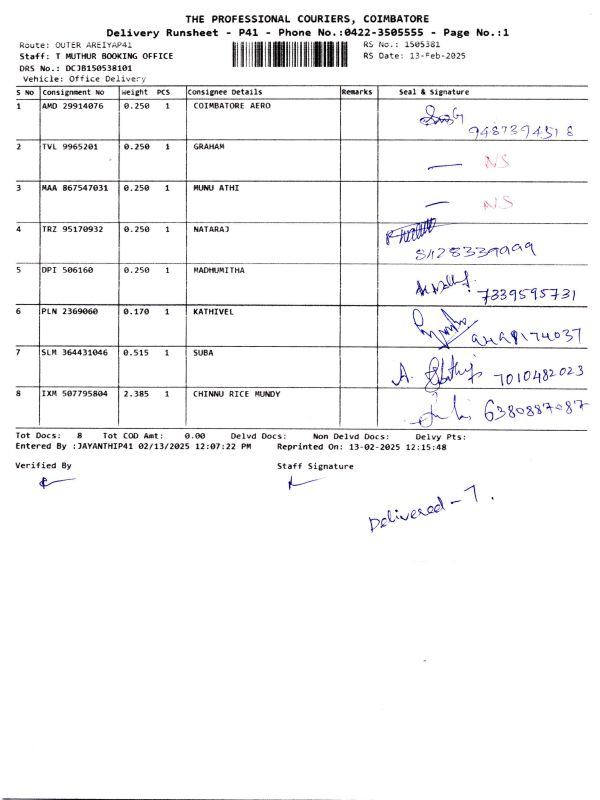 THE PROFESSIONAL COURIERS, COIMBATORE
Delivery Runsheet - P41 - Phone No.:0422-3505555 - Page No.:1
Route: OUTER AREIYAP41 RS No.: 1505381
Staff: T MUTHUR BOOKING OFFICE RS Date: 13-Feb-2025
DRS No.: DCJB150538101
Vehicle: Office Delivery
S No Consignment No Weight PCS Consignee Details Remarks Seal & Signature
1 AMD 29914076 0.250 1 COIMBATORE AERO
9487394518
2 TVL 9965201 0.250 1 GRAHAM — NS
3 MAA 867547031 0.250 1 MUNU ATHI — NS
4 TRZ 95170932 0.250 1 NATARAJ
8428339999
5 DPI 506160 0.250 1 MADHUMITHA
7339595731
6 PLN 2369060 0.170 1 KATHIVEL
7 SLM 364431046 0.515 1 SUBA
A. 7010482023
8 IXM 507795804 2.385 1 CHINNU RICE MUNDY
6380887087
Tot Docs: 8 Tot COD Amt: 0.00 Delvd Docs: Non Delvd Docs: Delvy Pts:
Entered By :JAYANTHIP41 02/13/2025 12:07:22 PM Reprinted On: 13-02-2025 12:15:48
Verified By Staff Signature
Delivered - 7.